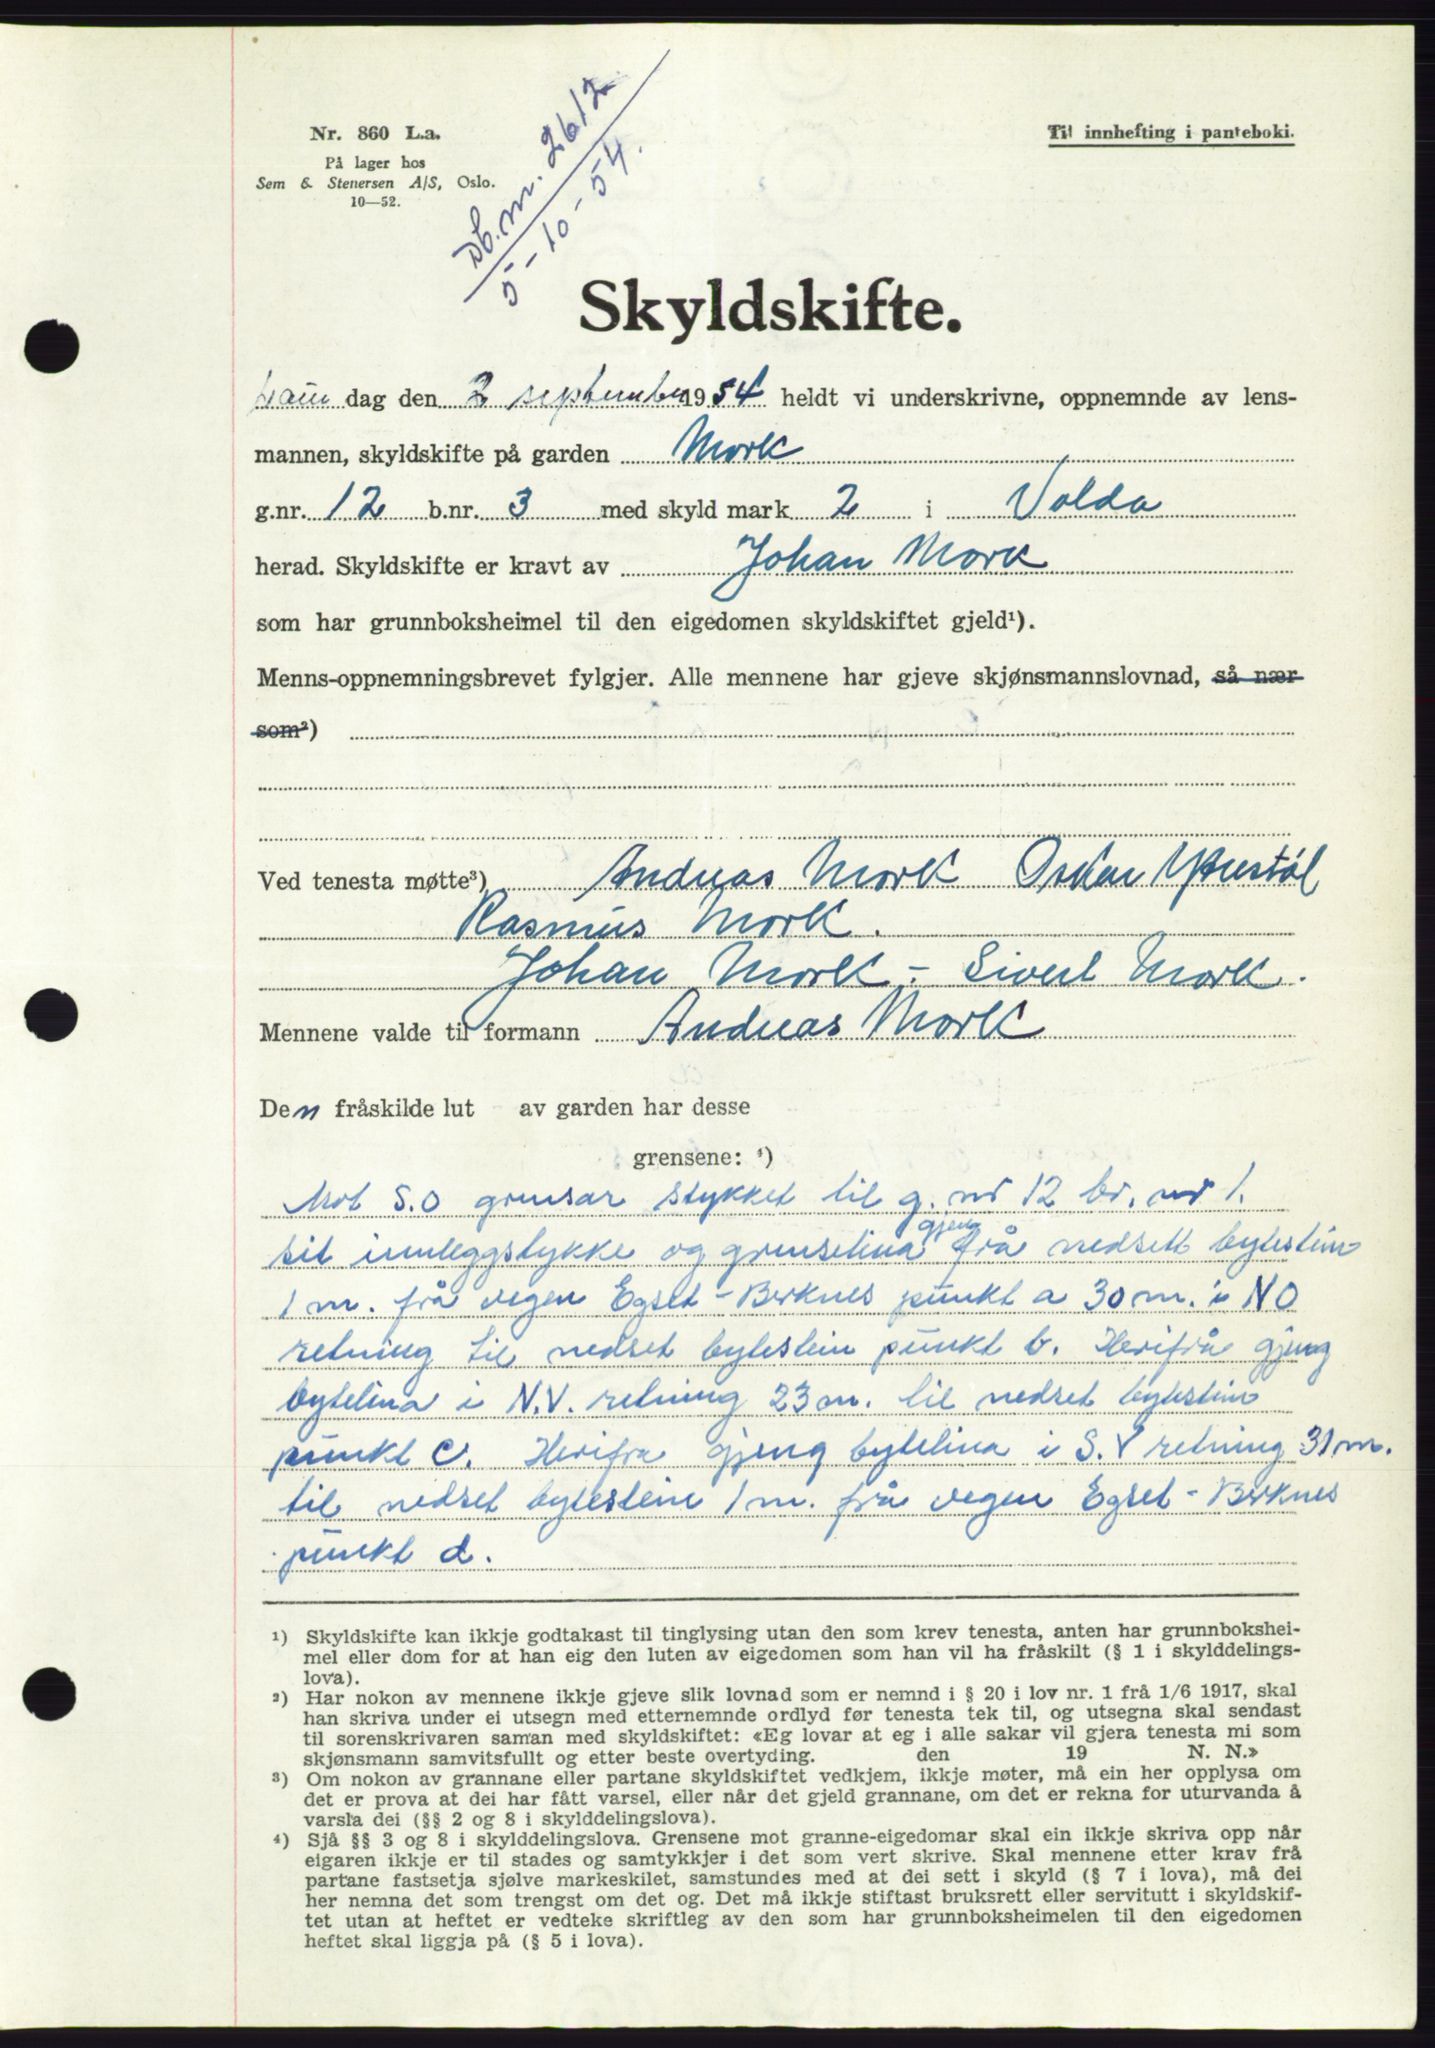 Nr. 860 L.a.
På lager hos
Sem & Stenersen A/S, Oslo.
10—52.
Db. nr. 2612
5-10-54.
Til innhefting i panteboki.
Skyldskifte.
dag den 2 september 1954 heldt vi underskrivne, oppnemnde av lens-
mannen, skyldskifte på garden Mork
g.nr. 12 b.nr. 3 med skyld mark 2 i Volda
herad. Skyldskifte er kravt av Johan Mork
som har grunnboksheimel til den eigedomen skyldskiftet gjeld¹).
Menns-oppnemningsbrevet fylgjer. Alle mennene har gjeve skjønsmannslovnad, så nær
som²)
Ved tenesta møtte³) Andreas Mork Oskar
Rasmus Mork.
Johan Mork - Sivert Mork.
Mennene valde til formann Andreas Mork
Den fråskilde lut av garden har desse
grensene: ⁴)
Mot S.O grensar stykket til g. nr 12 br. nr 1.
sit innleggstykke og grenselina gjeng frå nedsett bytestein
1 m. frå vegen Egset - Berknes punkt a 30 m. i NO
retning til nedset bytestein punkt b. Herifrå gjeng
bytelina i N.V. retning 23 m. til nedset bytestein
punkt c. Herifra gjeng bytelina i S.V retning 31 m.
til nedset bytestein 1 m. frå vegen Egset - Berknes
punkt d.
¹) Skyldskifte kan ikkje godtakast til tinglysing utan den som krev tenesta, anten har grunnbokshei-
mel eller dom for at han eig den luten av eigedomen som han vil ha fråskilt (§ 1 i skylddelings-
lova).
²) Har nokon av mennene ikkje gjeve slik lovnad som er nemnd i § 20 i lov nr. 1 frå 1/6 1917, skal
han skriva under ei utsegn med etternemnde ordlyd før tenesta tek til, og utsegna skal sendast
til sorenskrivaren saman med skyldskiftet: «Eg lovar at eg i alle sakar vil gjera tenesta mi som
skjønsmann samvitsfullt og etter beste overtyding. den 19 N. N.»
³) Om nokon av grannane eller partane skyldskiftet vedkjem, ikkje møter, må ein her opplysa om
det er prova at dei har fått varsel, eller når det gjeld grannane, om det er rekna for uturvanda å
varsla dei (§§ 2 og 8 i skylddelingslova).
⁴) Sjå §§ 3 og 8 i skylddelingslova. Grensene mot granne-eigedomar skal ein ikkje skriva opp når
eigaren ikkje er til stades og samtykkjer i det som vert skrive. Skal mennene etter krav frå
partane fastsetja sjølve markeskilet, samstundes med at dei sett i skyld (§ 7 i lova), må dei
her nemna det som trengst om det og. Det må ikkje stiftast bruksrett eller servitutt i skyldskif-
tet utan at heftet er vedteke skriftleg av den som har grunnboksheimelen til den eigedomen
heftet skal liggja på (§ 5 i lova).